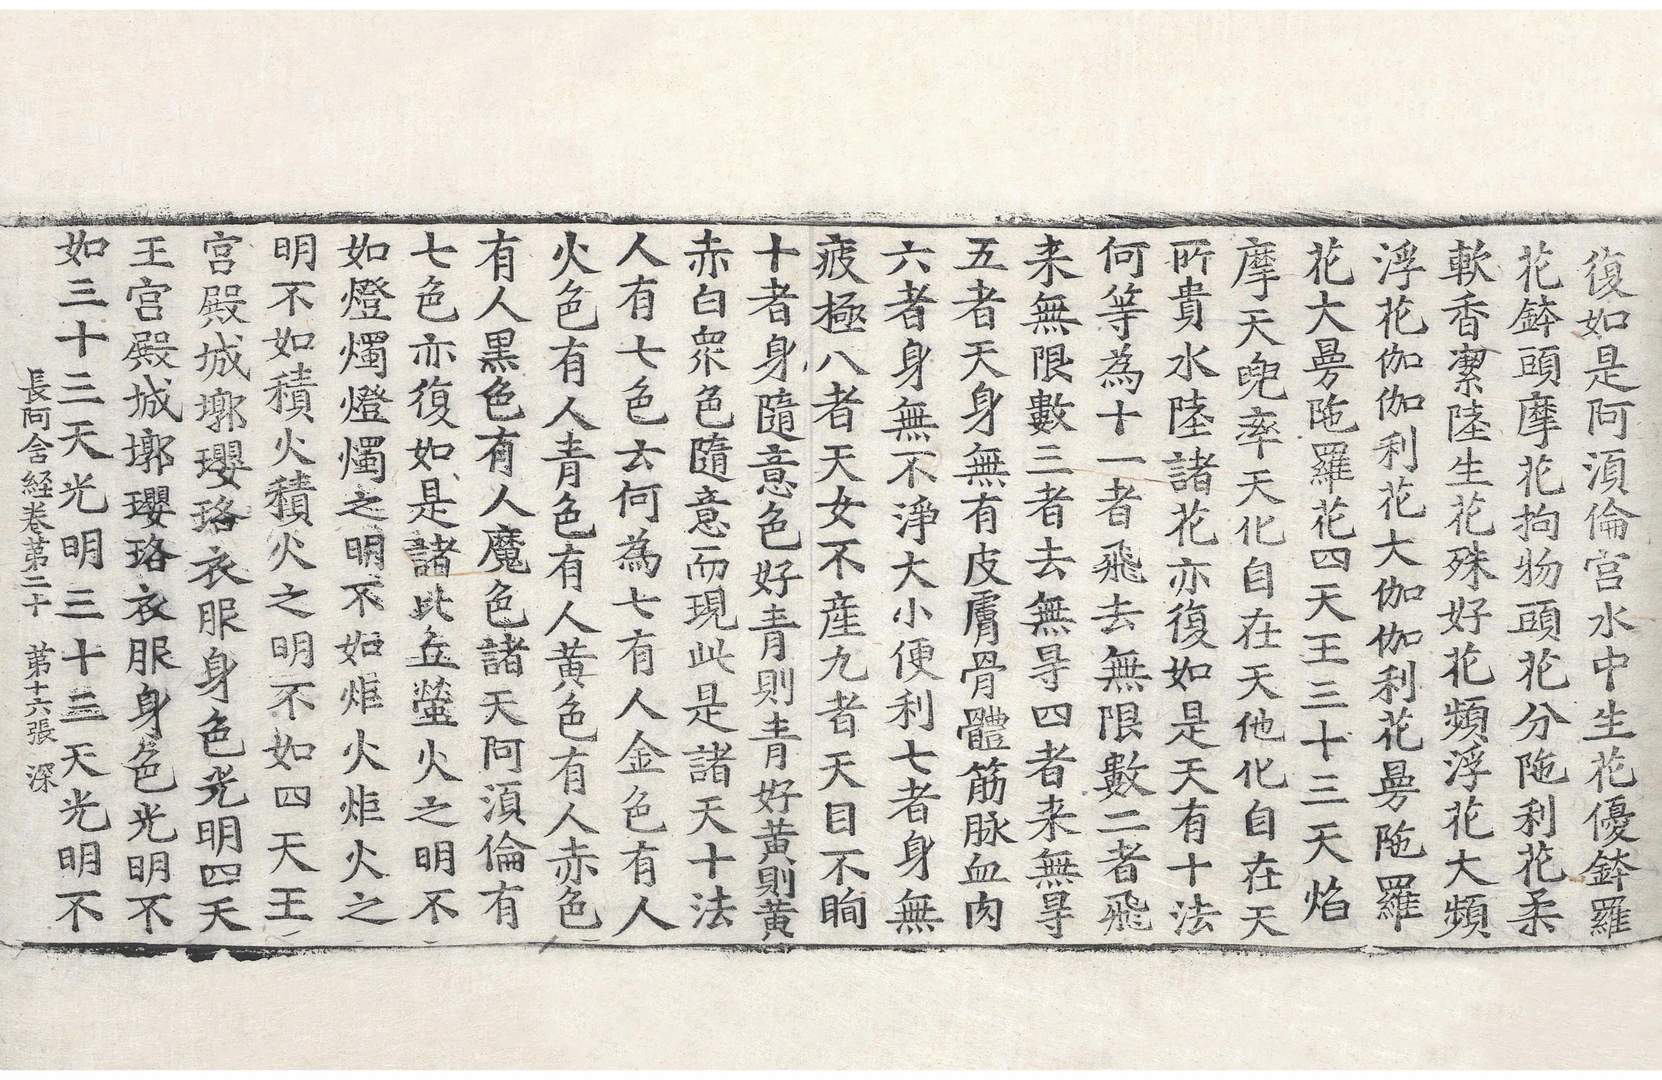 復如是阿湏倫宮水中生花優鉢羅
花鉢頭摩花拘物頭花分陁利花柔
軟香潔陸生花殊好花頻浮花大頻
浮花伽伽利花大伽伽利花曼陁羅
花大曼陁羅花四天王三十三天焰
摩天兜率天化自在天他化自在天
所貴水陸諸花亦復如是天有十法
何等為十一者飛去無限數二者飛
来無限數三者去無导四者来無导
五者天身無有皮膚骨體筋脉血肉
六者身無不淨大小便利七者身無
疲極八者天女不産九者天目不眴
十者身隨意色好青則青好黃則黃
赤白衆色隨意而現此是諸天十法
人有七色云何為七有人金色有人
火色有人青色有人黃色有人赤色
有人黑色有人魔色諸天阿湏倫有
七色亦復如是諸比丘螢火之明不
如燈燭燈燭之明不如炬火炬火之
明不如積火積火之明不如四天王
宮殿城墎瓔珞衣服身色光明四天
王宮殿城墎瓔珞衣服身色光明不
如三十三天光明三十三天光明不
長阿含経卷第二十 第十六張 深